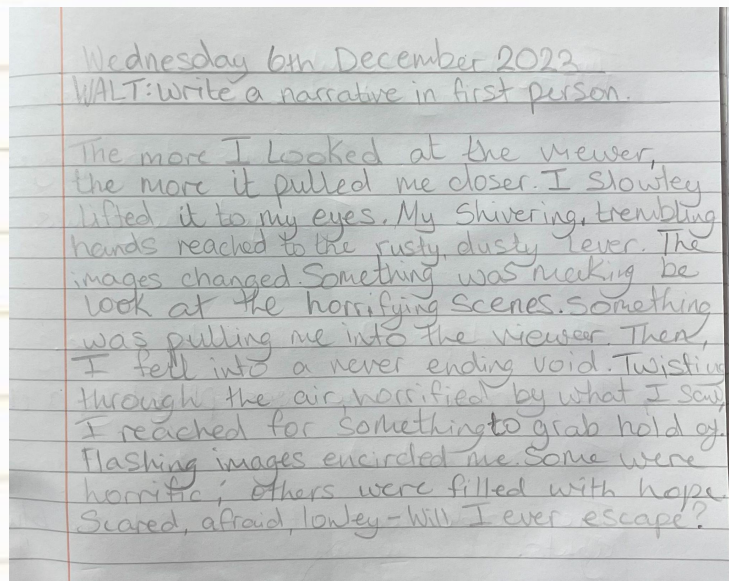 Wednesday 6th December 2023
WALT: Write a narrative in first person.
The more I Looked at the viewer,
the more it pulled me closer. I Slowley
lifted it to my eyes. My Shivering, trembling
hands reached to the rusty, dusty lever. The
images changed. Something was making be
look at the horrifying scenes. Something
was pulling me into the viewer. Then,
I fell into a never ending void. Twisting
through the air, horrified by what I saw,
I reached for Something to grab hold of.
Flashing images encircled me. Some were
horrific; others were filled with hope.
Scared, afraid, lowley - Will I ever escape?